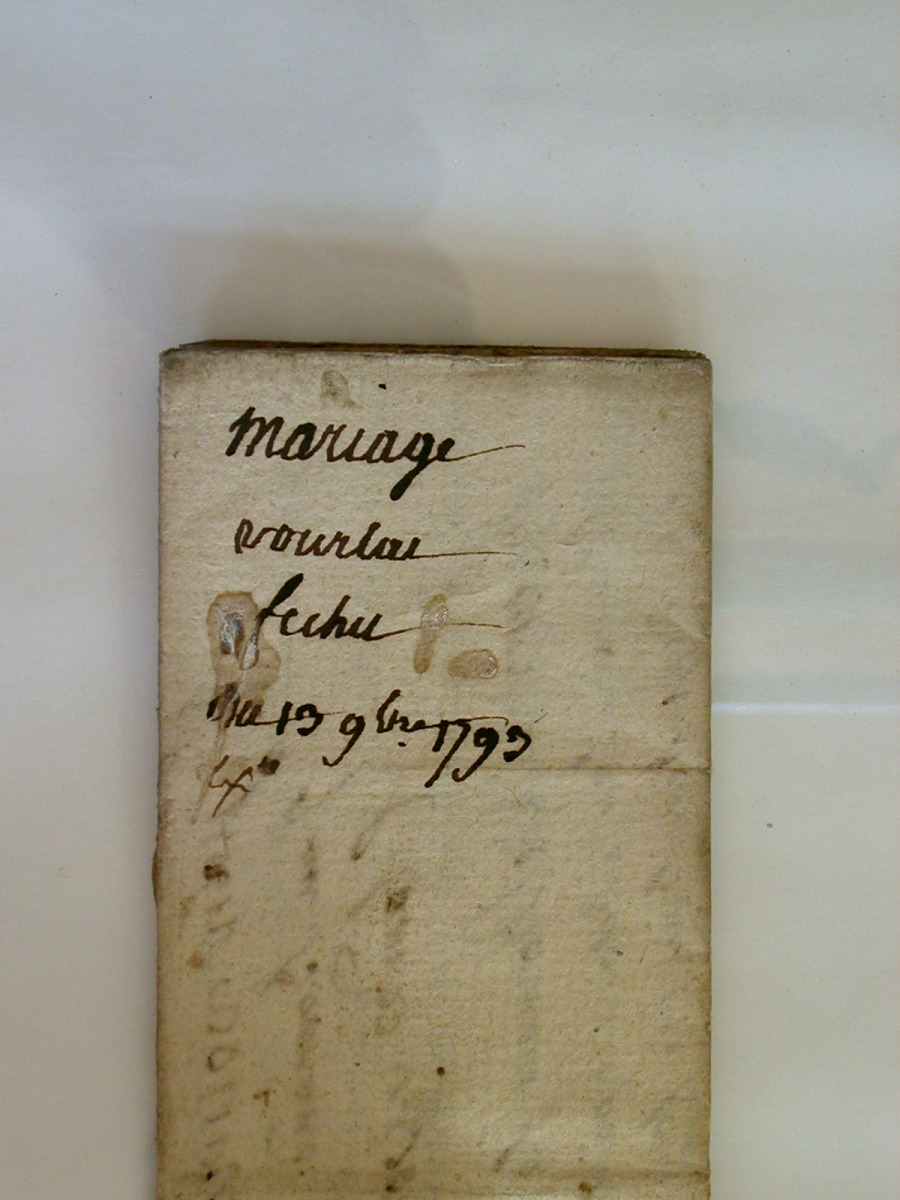 mariage
vourlat
fechu
Du 13 9bre 1793